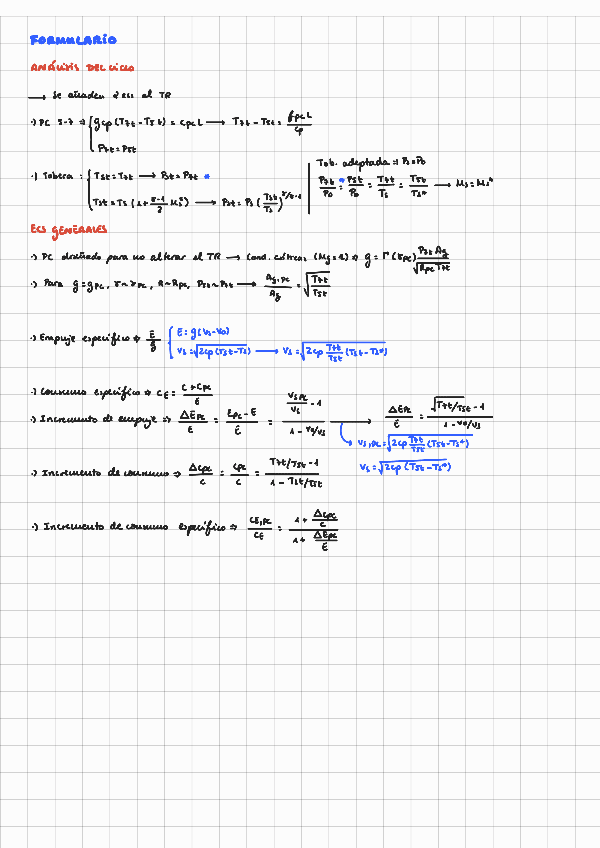 FORMULARIO
ANÁLISIS DEL CICLO
→ Se añaden 2 ecs al TR
·) PC 5-7 ⇒ { g cp (T7t - T5t) = c_PC L → T7t - T5t = f_PC L / cp
P7t = P5t
·) Tobera : { T5t = T7t → P5t = P7t *
T5t = Ts (1 + (γ-1)/2 Ms²) → P5t = Ps (T5t/Ts)^(γ/γ-1)
Tob. adaptada ⇒ Ps = P0
P7t/P0 = P5t/P0 = T7t/Ts = T5t/Ts* → Ms = Ms*
ECS GENERALES
·) PC diseñado para no alterar el TR → Cond. críticas (Mg = 1) ⇒ g = Γ(γPC) P7t Ag / √(RPC T7t)
·) Para g = gPC, γ ~ γPC, R ~ RPC, P5t ~ P7t → Ag,PC / Ag = √(T7t / T5t)
·) Empuje específico ⇒ E/g { E = g (Vs - V0)
Vs = √(2cp (T5t - Ts)) → Vs = √(2cp T7t/T5t (T5t - Ts*))
·) Consumo específico ⇒ CE = (C + CPC) / E
·) Incremento de empuje ⇒ ΔEPC / E = (EPC - E) / E = (Vs,PC/Vs - 1) / (1 - V0/Vs) → ΔEPC / E = (√(T7t/T5t) - 1) / (1 - V0/Vs)
Vs,PC = √(2cp T7t/T5t (T5t - Ts*))
Vs = √(2cp (T5t - Ts*))
·) Incremento de consumo ⇒ ΔCPC / C = CPC / C = (T7t/T5t - 1) / (1 - T3t/T5t)
·) Incremento de consumo específico ⇒ CE,PC / CE = (1 + ΔCPC/C) / (1 + ΔEPC/E)